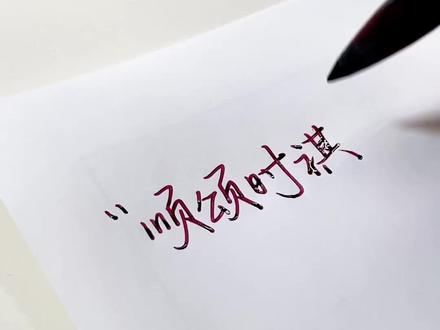 “顺颂时祺